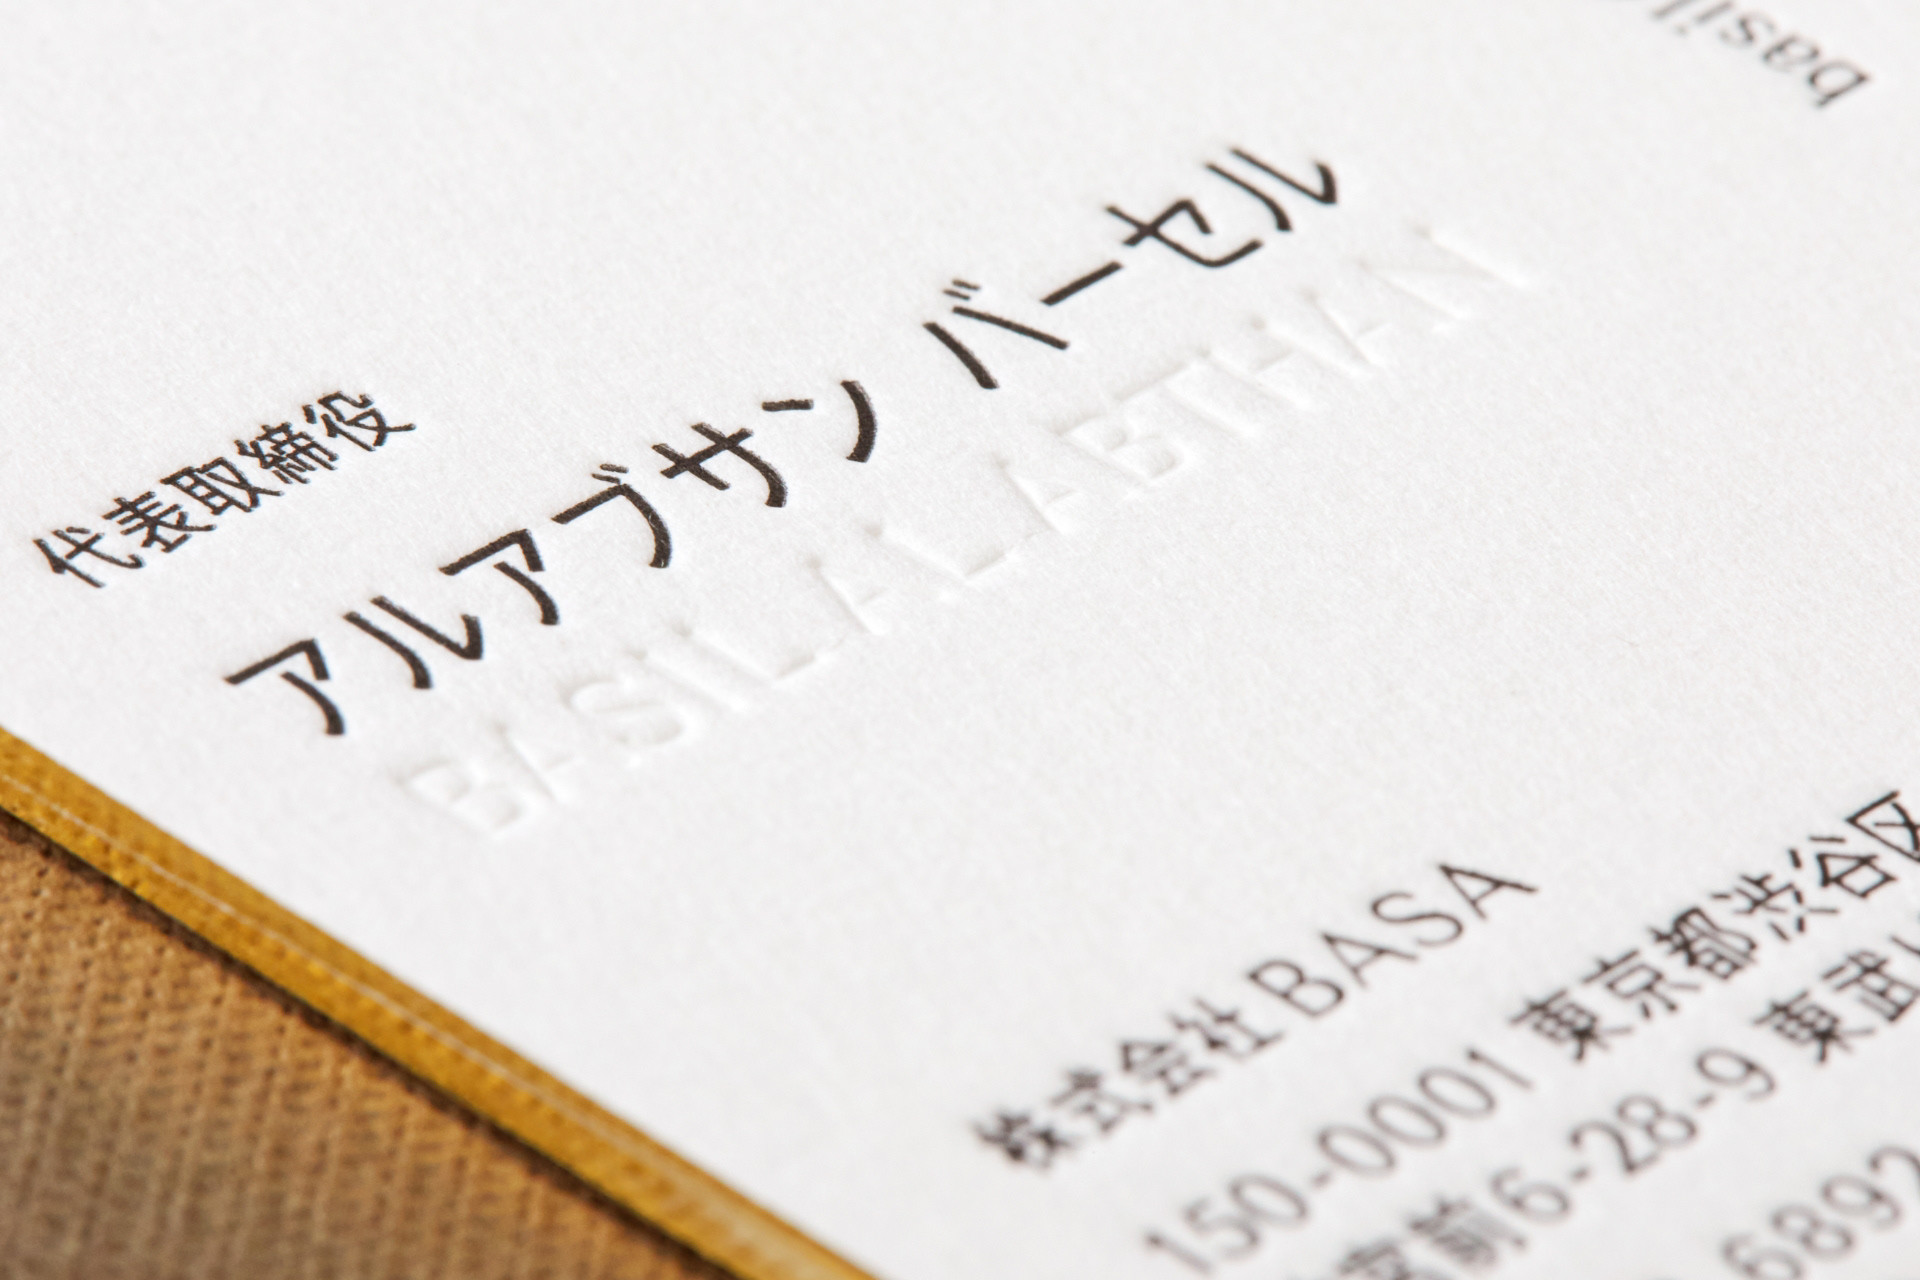 basil
代表取締役
アルアブサン バーセル
BASIL ALABTHAN
株式会社 BASA
150-0001 東京都渋谷区
宮前6-28-9 東武
6892